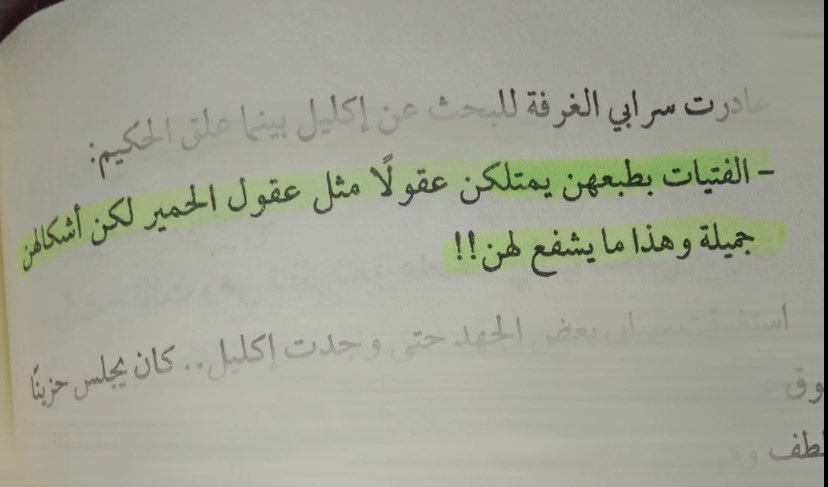 غادرت سرابي الغرفة للبحث عن إكليل بينما علق الحكيم:
- الفتيات بطبعهن يمتلكن عقولًا مثل عقول الحمير لكن أشكالهن
جميلة وهذا ما يشفع لهن!!
سرابي بعض الجهد حتى وجدت إكليل.. كان يجلس حزينًا